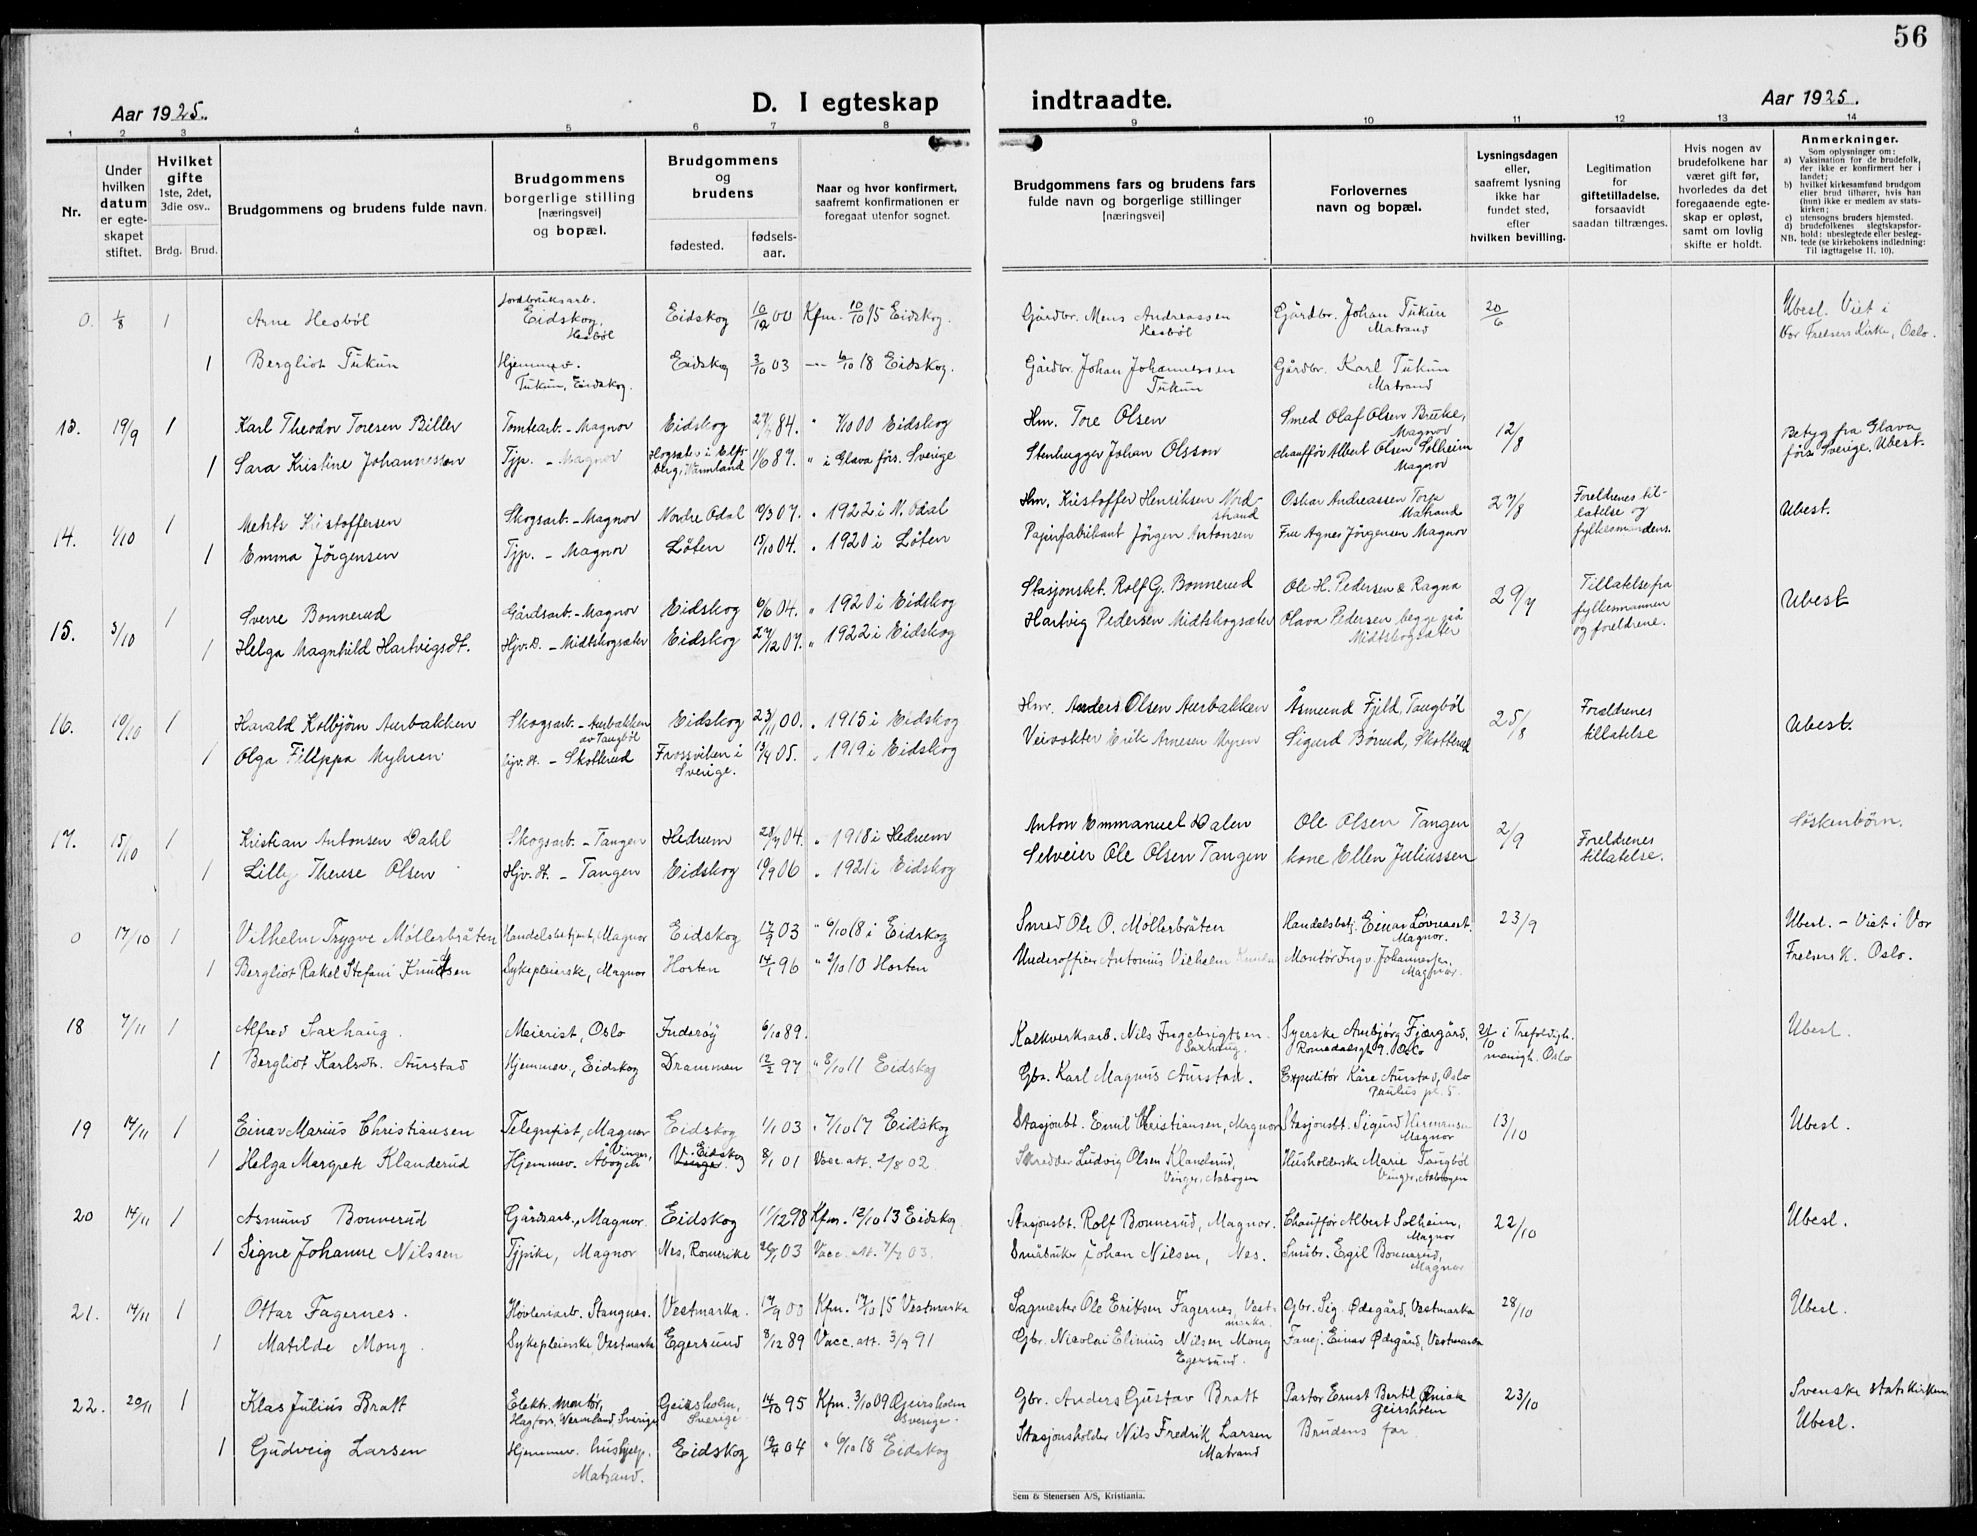 56
Aar 1925.
D. I egteskap
indtraadte.
Aar 1925.
1 2 3 4 5 6 7 8 9 10 11 12 13 14
Nr.
Under
hvilken
datum
er egte-
skapet
stiftet.
Hvilket
gifte
1ste, 2det,
3die osv..
Brdg. Brud.
Brudgommens og brudens fulde navn.
Brudgommens
borgerlige stilling
[næringsvei]
og bopæl.
Brudgommens
og
brudens
fødested.
fødsels-
aar.
Naar og hvor konfirmert,
saafremt konfirmationen er
foregaat utenfor sognet.
Brudgommens fars og brudens fars
fulde navn og borgerlige stillinger
[næringsvei]
Forlovernes
navn og bopæl.
Lysningsdagen
eller,
saafremt lysning
ikke har
fundet sted,
efter
hvilken bevilling.
Legitimation
for
giftetilladelse,
forsaavidt
saadan tiltrænges.
Hvis nogen av
brudefolkene har
været gift før,
hvorledes da det
foregaaende egte-
skap er opløst,
samt om lovlig
skifte er holdt.
Anmerkninger.
Som oplysninger om:
a) Vaksination for de brudefolk,
der ikke er konfirmert her i
landet;
b) hvilket kirkesamfund brudgom
eller brud tilhører, hvis han
(hun) ikke er medlem av stats-
kirken;
c) utensogns bruders hjemsted.
d) brudefolkenes slegtskapsfor-
hold: ubeslegtede eller besleg-
NB. tede (se kirkebokens indledning:
Til iagttagelse II, 10).
0. 1/8 1 Arne Hesböl
Jordbruksarb.
Eidskog
Hesböl
Eidskog 10/12 00 Kfm. 10/10 15 Eidskog.
Gårdbr. Mens Andreassen
Hesböl
Gårdbr. Johan Tukun
Matrand
20/6
Ubesl. Viet i
Vor Frelsers Kirke, Oslo.
1 Bergliot Tukun
Hjemmev.
Tukun, Eidskog.
Eidskog 3/10 03 — 6/10 18 Eidskog.
Gårdbr. Johan Johannessen
Tukun
Gårdbr. Karl Tukun
Matrand
13. 19/9 1 Karl Theodor Toresen Biller
Tomtearb. - Magnor Eidskog 84. " 1/10 00 Eidskog
Hm. Tore Olsen
Smed Olaf Olsen Bruke,
Magnor
12/8
Betyg fra Glava
förs. Sverige. Ubesl.
1 Sara Kristine Johannesson
Tjp. - Magnor 87. " i Glava förs. Sverige
Stenhugger Johan Olsson
chauffør Albert Olsen Solheim
Magnor
14. 1/10 1 Kristoffersen
Skogsarb. - Magnor Nordre Odal 07. " 1922 i N. Odal
Hm. Kristoffer Henriksen Nord-
strand
Oskar Andreassen Torp
Matrand
27/8
Foreldrenes til-
latelse og
fylkesmandens.
Ubesl.
1 Emma Jørgensen
Tjp. - Magnor Löten 15/10 04. " 1920 i Löten
Papirfabrikant Jörgen Antonsen
Fru Agnes Jörgensen Magnor
15. 3/10 1 Sverre Bonnerud
Gårdsarb. - Magnor Eidskog 6/6 04. " 1920 i Eidskog
Stasjonsbet. Rolf G. Bonnerud
Ole H. Pedersen & Ragna
29/7
Tillatelse fra
fylkesmannen
og foreldrene.
Ubesl.
1 Helga Magnhild Hartvigsdt.
Hjv. D. - Midtskogsæter Eidskog 27/12 07. " 1922 i Eidskog
Hartvig Pedersen Midtskogsæter
Olava Pedersen begge på
Midtskogsæter
16. 10/10 1 Harald Kolbjørn Aurbakken
Skogsarb. - Aurbakken
av Tangböl
Eidskog 23/11 00. " 1915 i Eidskog
Hmr. Anders Olsen Aurbakken
Åsmund Fjeld, Tangböl
25/8
Foreldrenes
tillatelse
Ubesl.
1 Olga Filippa Myhren
Hjv. H. - Skotterud
Frossviken i
Sverige.
05. " 1919 i Eidskog
Veivokter Erik Arnesen Myren
Sigurd Börud, Skotterud
17. 15/10 1 Kristian Antonsen Dahl
Skogsarb. - Tangen Hedrum 28/9 04. " 1918 i Hedrum
Anton Emmanuel Dalen
Ole Olsen Tangen
2/9
Foreldrenes
tillatelse.
Söskenbörn.
1 Lilly Therese Olsen
Hjv. H. - Tangen Eidskog 19/9 06 " 1921 i Eidskog
Selveier Ole Olsen Tangen
kone Ellen Juliussen
0 17/10 1 Vilhelm Trygve Møllerbråten
Handelsbetjent, Magnor Eidskog 17/9 03 " 6/10 18 i Eidskog
Smed Ole O. Møllerbråten
Handelsbetj. Einar Løvnaset.
Magnor.
23/9
Ubesl. - Viet i Vor
Frelsers K. Oslo.
1 Bergliot Rakel Stefani Knudsen
Sykepleierske, Magnor Horten 96 " 2/10 10 Horten
Underofficer Antonius Vilhelm Knudsen
Montör Ingv. Johannessen,
Magnor.
18 7/11 1 Alfred Saxhaug.
Meierist, Oslo Inderøy 6/10 89.
Kalkverksarb. Nils Ingebrigtsen
Saxhaug.
Syerske Ambjörg Fjærgård,
Romsdalsgt 9. Oslo
21/10 i Trefoldigh.
menigh. Oslo
Ubesl.
1 Bergliot Karlsdt. Aurstad
Hjemmev., Eidskog Drammen 12/2 97 " 8/10 11 Eidskog
Gbr. Karl Magnus Aurstad.
Expeditör Kåre Aurstad, Oslo
Paulus pl. 5.
19 14/11 1 Einar Marius Christiansen
Telegrafist, Magnor Eidskog 1/1 03 " 7/10 17 Eidskog
Stasjonbt. Emil Kristiansen, Magnor
Stasjonsbt. Sigurd Hermansen
Magnor
13/10
Ubesl.
1 Helga Margrete Klanderud
Hjemmev. Åbogen
Vinger,
V. Eidskog
Vinger.
8/1 01 Vacc. att. 2/8 02.
Skredder Ludvig Olsen Klanderud,
Vinger, Aabogen
Husholderske Marie Tangböl
Vinger, Aabogen
20 14/11 1 Asmund Bonnerud
Gårdsarb., Magnor. Eidskog 11/12 98 Kfm. 12/10 13 Eidskog.
Stasjonsbt. Rolf Bonnerud, Magnor.
Chauffør Albert Solheim,
Magnor
22/10
Ubesl.
1 Signe Johanne Nilssen
Tjpike, Magnor Nes, Romerike 03 Vacc. att. 03.
Småbruker Johan Nilsen, Nes.
Småbr. Egil Bonnerud,
Magnor
21. 14/11 1 Ottar Fagernes.
Høvleriarb. Stangnes. Vestmarka. 17/9 00 Kfm. 17/10 15 Vestmarka
Sagmester Ole Eriksen Fagernes, Vest-
marka.
Gbr. Sig. Ødegård, Vestmarka
28/10
Ubesl.
1 Matilde Mong.
Sykepleierske, Vestmarka Egersund 8/12 89 Vacc. att. 3/9 91
Gbr. Nicolai Elinius Nilsen Mong
Egersund.
Einar Ødegård, Vestmarka
22. 20/11 1 Klas Julius Bratt
Elektr. montør,
Hagfors, Wermland, Sverige
Geirsholm,
Sverige.
14/10 95 Kfm. 3/10 09 Geirsholm
Sverige.
Gbr. Anders Gustav Bratt
Pastor Ernst Bertil
Geirsholm
23/10
Svenske statskirken
Ubesl.
1 Gudveig Larsen
Hjemmev. hushjelp.
Matrand.
Eidskog 04 " 6/10 18 Eidskog
Stasjonsholder Nils Fredrik Larsen
Matrand
Brudens far.
Sem & Stenersen A/S, Kristiania.